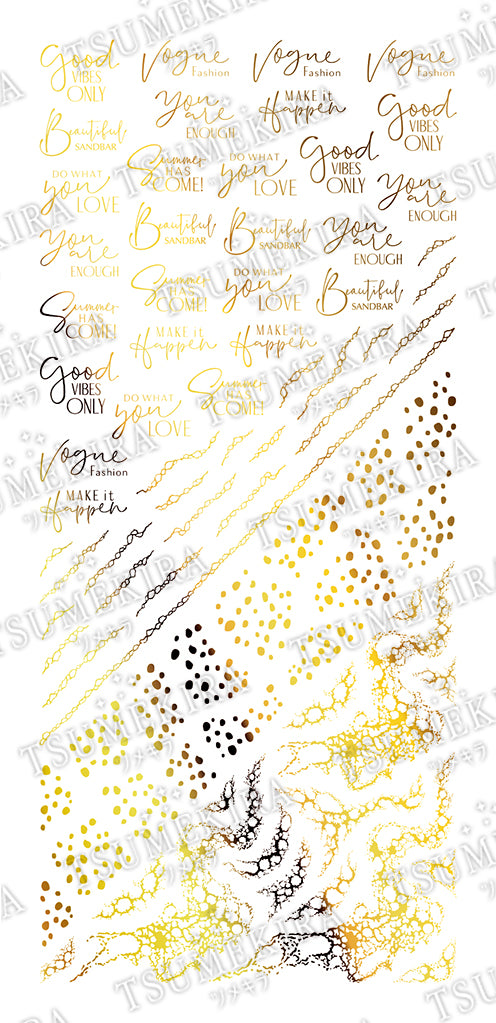 Good
VIBES
ONLY
Vogue
Fashion
Vogue
Fashion
Vogue
Fashion
You
are
ENOUGH
MAKE it
Happen
Good
VIBES
ONLY
Beautiful
SANDBAR
Summer
HAS
COME!
DO WHAT
you
LOVE
Good
VIBES
ONLY
DO WHAT
you
LOVE
You
are
ENOUGH
You
are
ENOUGH
Beautiful
SANDBAR
Beautiful
SANDBAR
You
are
ENOUGH
Summer
HAS
COME!
Summer
HAS
COME!
DO WHAT
you
LOVE
Beautiful
SANDBAR
MAKE it
Happen
MAKE it
Happen
Good
VIBES
ONLY
DO WHAT
you
LOVE
Summer
HAS
COME!
Vogue
Fashion
MAKE it
Happen
TSUMEKIRA
ツメキラ